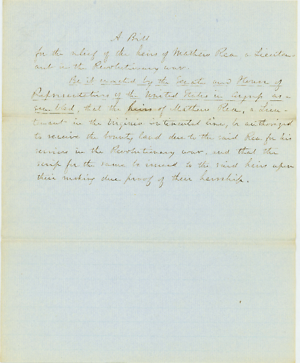 A Bill
for the relief of the heirs of Mathew Rea, a Lieuten
ant in the Revolutionary war.
Be it enacted by the Senate and House of
Representatives of the United States in Congress as-
sembled, that the heirs of Mathew Rea, a Lieu-
tenant in the Virginia Continental line, be authorized
to receive the bounty land due to the said Rea for his
services in the Revolutionary war, and that the
for the same be issued to the said heirs upon
their making due proof of their heirship.